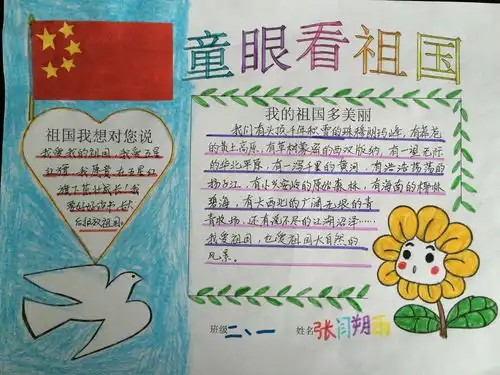 童眼看祖国
祖国我想对您说
我爱我的祖国,我爱五星
红旗,我愿意在五星红
旗下茁壮成长!我
要好好读书,长大
后报效祖国。
我的祖国多美丽
我们有头顶千年积雪的珠穆朗玛峰,有苍茫
的黄土高原,有草树蒙密的西双版纳,有一望无际
的华北平原,有一泻千里的黄河,有浩浩荡荡的
扬子江,有小兴安岭的原始森林,有海南的椰林
碧海,有大西北的广阔无垠的青
青牧场,还有说不尽的江湖沼泽……
我爱祖国,也爱祖国大自然的
风景。
班级二、一 姓名张闫朔雨